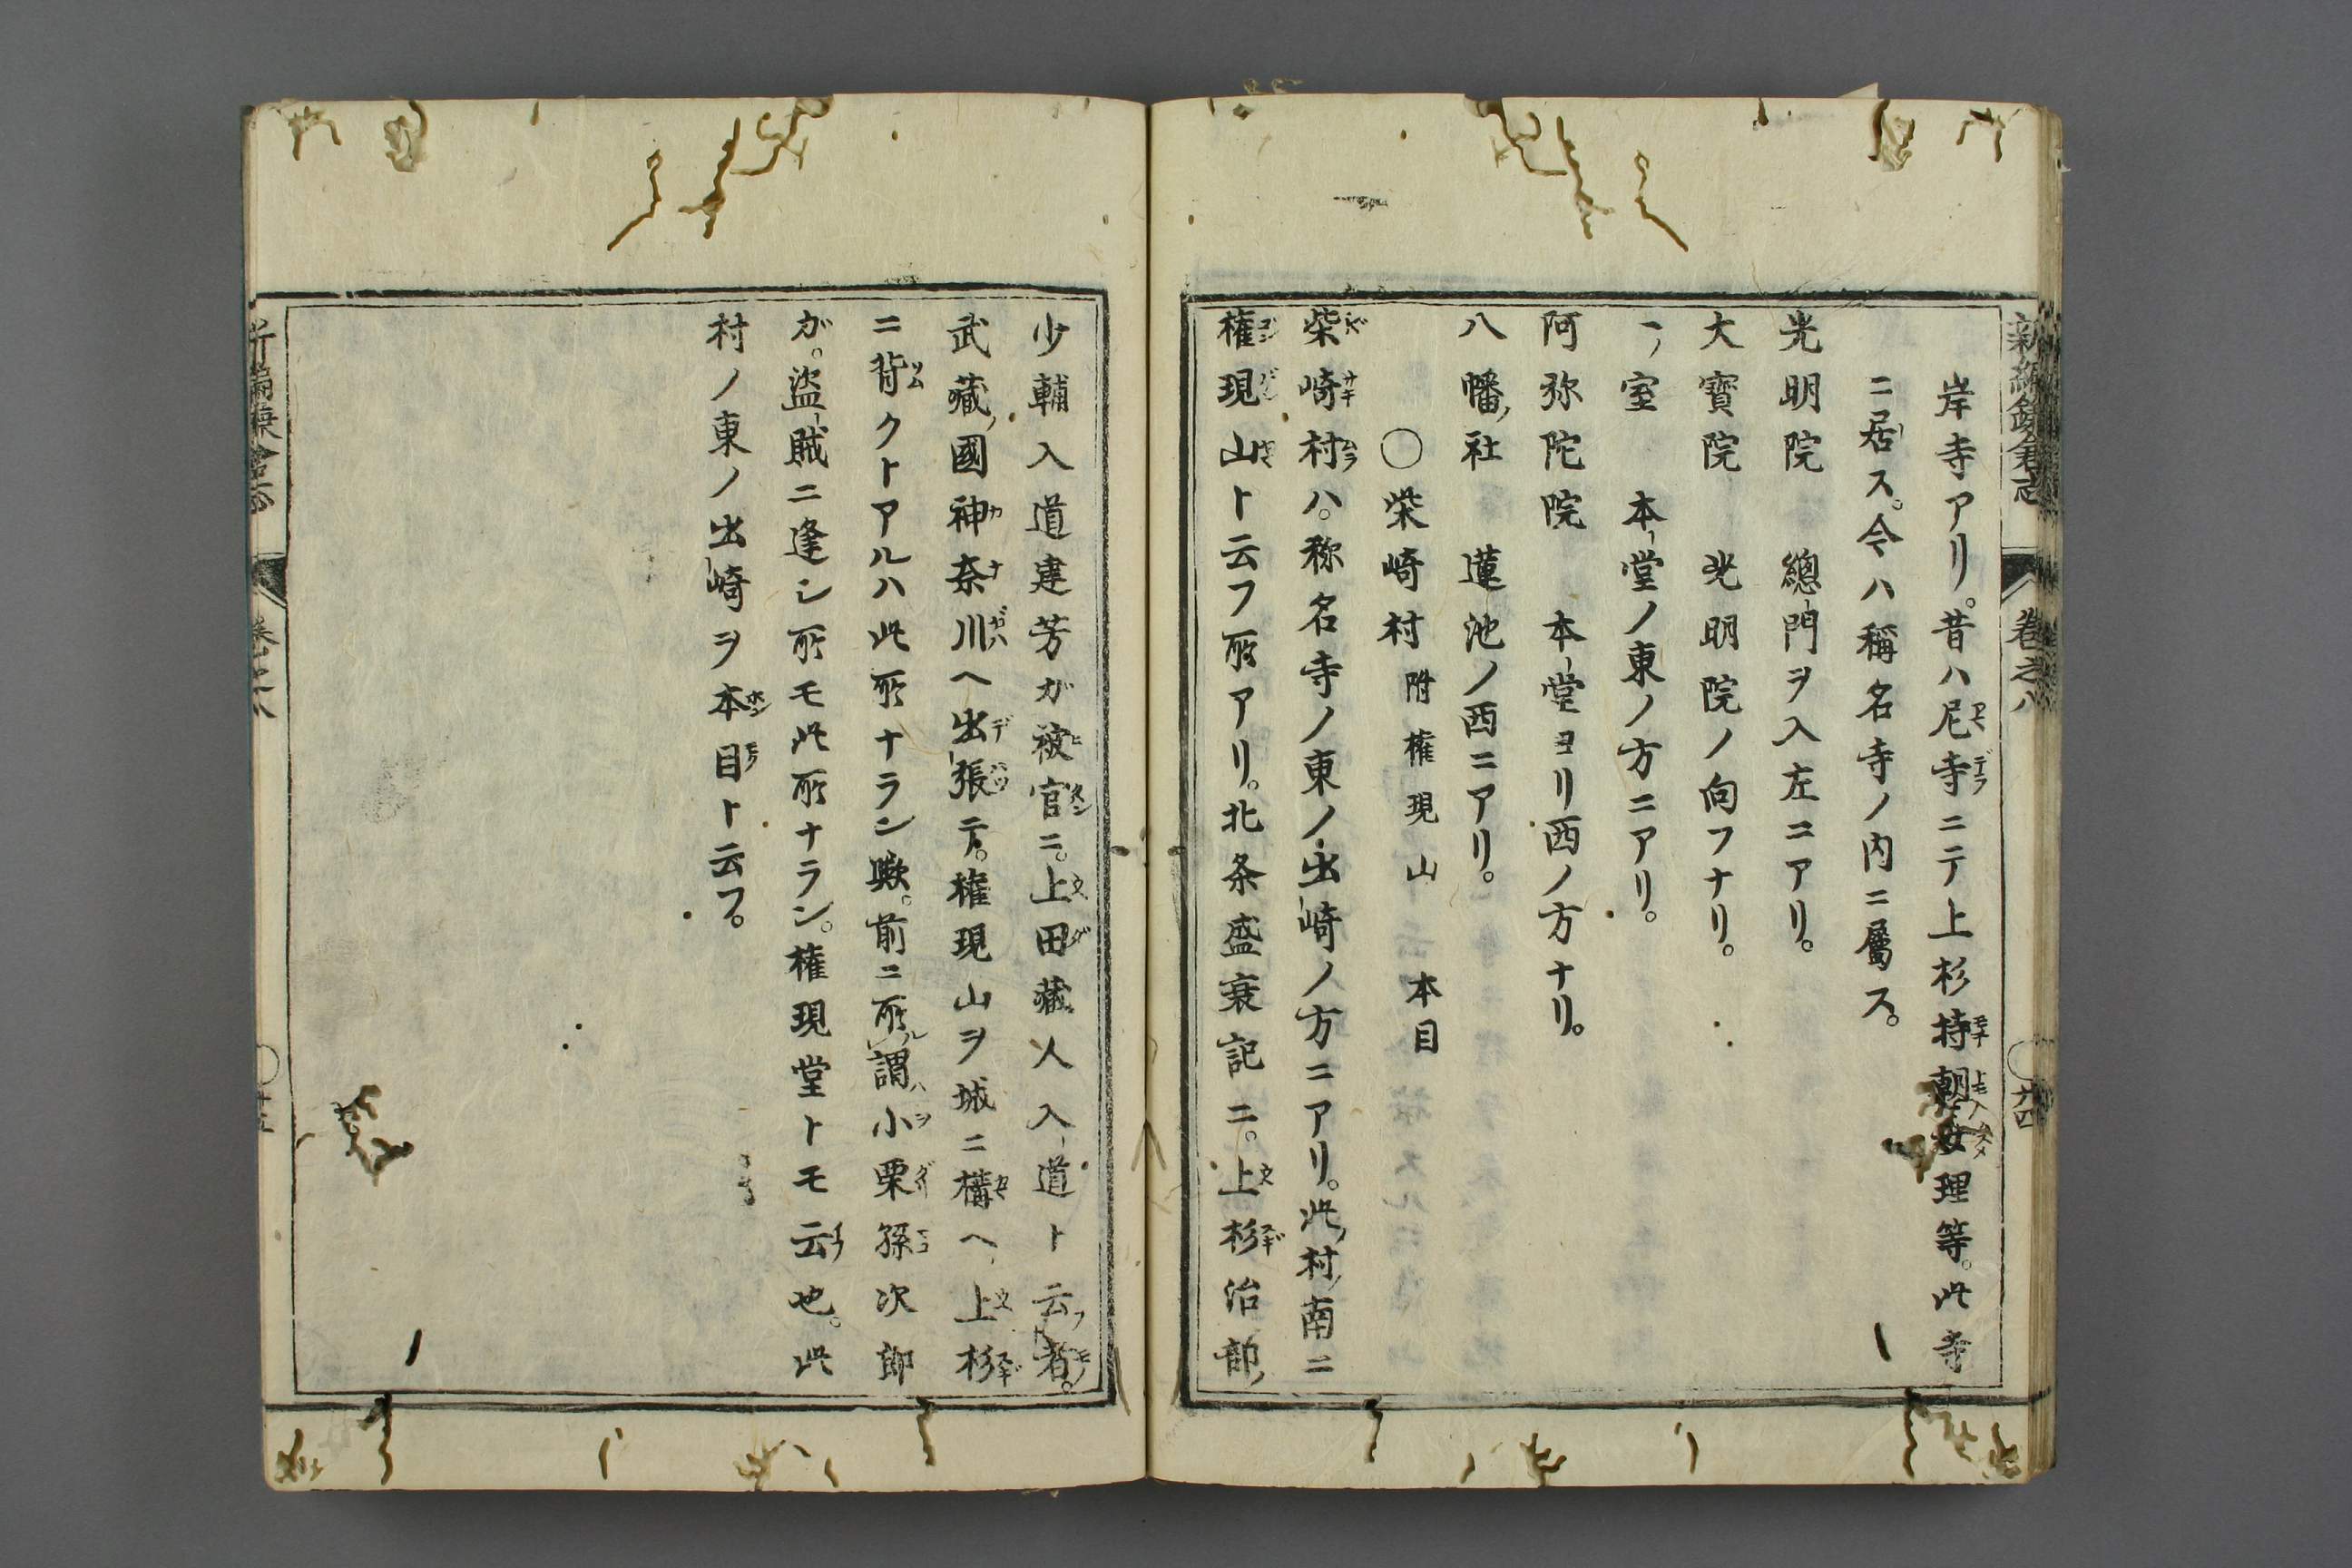 岸寺アリ。昔ハ尼寺ニテ上杉持朝女理等。此寺
ニ居ス。今ハ稱名寺ノ内ニ屬ス。
光明院　總門ヲ入左ニアリ。
大寶院　光明院ノ向フナリ。
一室　本堂ノ東ノ方ニアリ。
阿弥陀院　本堂ヨリ西ノ方ナリ。
八幡社　蓮池ノ西ニアリ。
〇柴崎村 附権現山　本目
柴崎村ハ。称名寺ノ東ノ出崎ノ方ニアリ。此村南ニ
権現山ト云フ所アリ。北条盛衰記ニ。上杉治部
新編鎌倉志　卷之八　〇廿四
少輔入道建芳ガ被官ニ。上田藏人入道ト云者。
武藏國神奈川ヘ出張テ。権現山ヲ城ニ構ヘ上杉
ニ背クトアルハ此所ナラン歟。前ニ所謂小栗孫次郎
ガ。盜賊ニ逢シ所モ此所ナラン。権現堂トモ云也。此
村ノ東ノ出崎ヲ本目ト云フ。